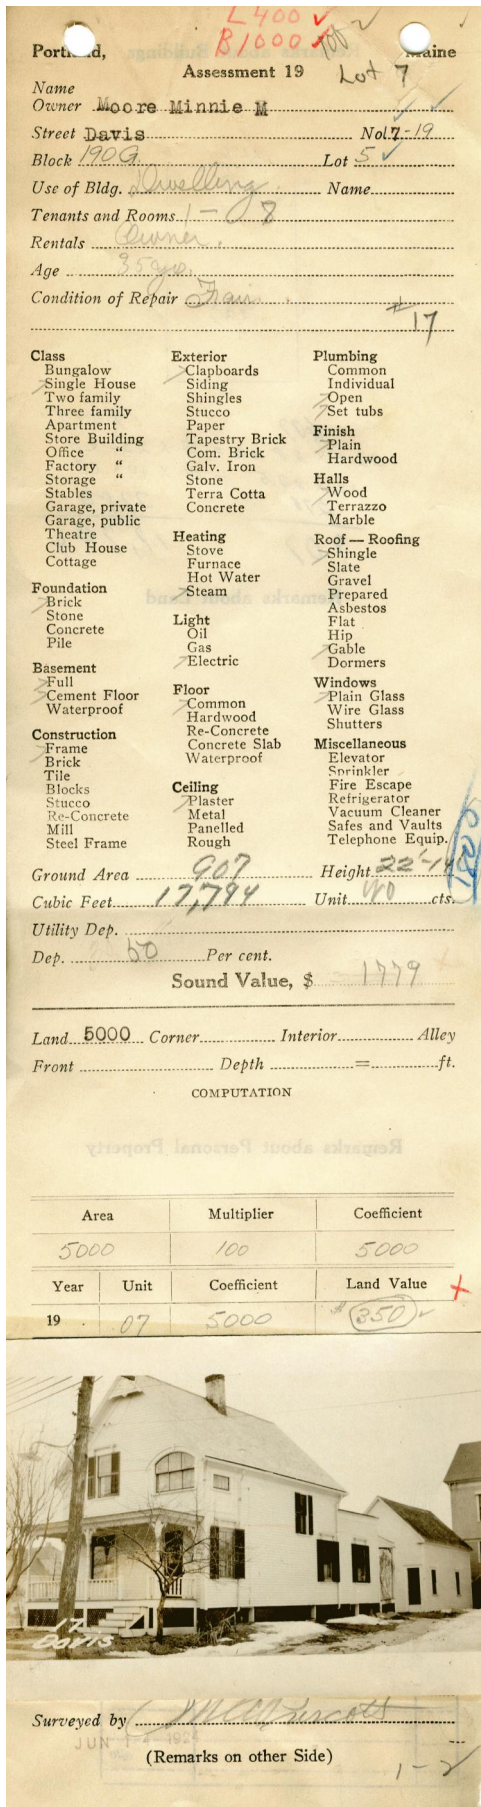 L 400 ✓
B 1000 ✓ 100 ✓
Portland, Maine
Assessment 19 Lot 7
Name
Owner Moore Minnie M
Street Davis No17-19
Block 190G Lot 5 ✓
Use of Bldg. Dwelling Name
Tenants and Rooms 1 - 8
Rentals Owner.
Age 35 yrs.
Condition of Repair Fair.
#17
Class
Bungalow
Single House
Two family
Three family
Apartment
Store Building
Office "
Factory "
Storage "
Stables
Garage, private
Garage, public
Theatre
Club House
Cottage
Foundation
Brick
Stone
Concrete
Pile
Basement
Full
Cement Floor
Waterproof
Construction
Frame
Brick
Tile
Blocks
Stucco
Re-Concrete
Mill
Steel Frame
Exterior
Clapboards
Siding
Shingles
Stucco
Paper
Tapestry Brick
Com. Brick
Galv. Iron
Stone
Terra Cotta
Concrete
Heating
Stove
Furnace
Hot Water
Steam
Light
Oil
Gas
Electric
Floor
Common
Hardwood
Re-Concrete
Concrete Slab
Waterproof
Ceiling
Plaster
Metal
Panelled
Rough
Plumbing
Common
Individual
Open
Set tubs
Finish
Plain
Hardwood
Halls
Wood
Terrazzo
Marble
Roof — Roofing
Shingle
Slate
Gravel
Prepared
Asbestos
Flat
Hip
Gable
Dormers
Windows
Plain Glass
Wire Glass
Shutters
Miscellaneous
Elevator
Sprinkler
Fire Escape
Refrigerator
Vacuum Cleaner
Safes and Vaults
Telephone Equip.
Ground Area 907 Height 22'-14'
Cubic Feet 17,794 Unit cts.
Utility Dep.
Dep. 50 Per cent.
Sound Value, $ 1779
Land 5000 Corner Interior Alley
Front Depth = ft.
COMPUTATION
Area Multiplier Coefficient
5000 100 5000
Year Unit Coefficient Land Value
19 07 5000 $350
17
DAVIS
Surveyed by
JUN
(Remarks on other Side)
1-2